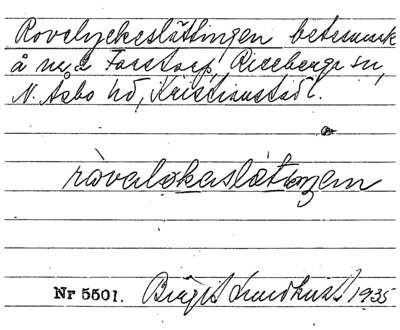 Rovelyckeslättingen betesmark
å nr 2 Farstorp, Riseberga sn,
N. Åsbo hd, Kristianstad l.
ròvalekaslætiŋen
Nr 5501. Birgit Lundkvist 1935